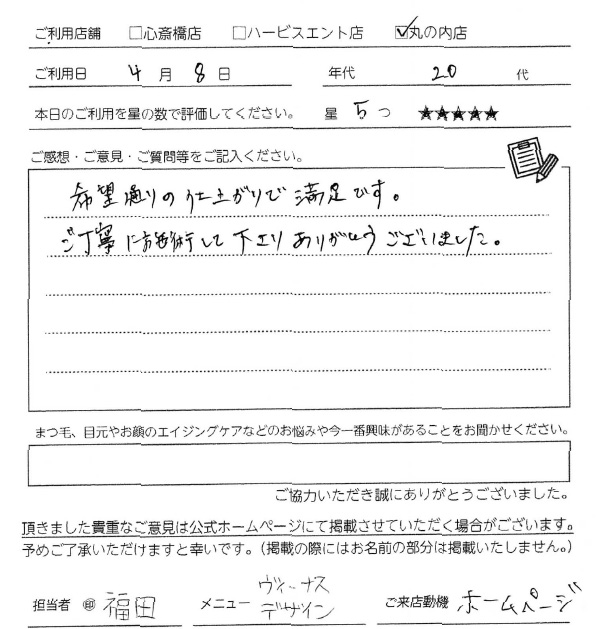 ご利用店舗 □心斎橋店 □ハービスエント店 ☑丸の内店
ご利用日 4月8日 年代 20代
本日のご利用を星の数で評価してください。 星 5つ ★★★★★
ご感想・ご意見・ご質問等をご記入ください。
希望通りの仕上がりで満足です。
ご丁寧に施術して下さりありがとうございました。
まつ毛、目元やお顔のエイジングケアなどのお悩みや今一番興味があることをお聞かせください。
ご協力いただき誠にありがとうございました。
頂きました貴重なご意見は公式ホームページにて掲載させていただく場合がございます。
予めご了承いただけますと幸いです。(掲載の際にはお名前の部分は掲載いたしません。)
担当者 ㊞ 福田 メニュー ヴィーナスデザイン ご来店動機 ホームページ